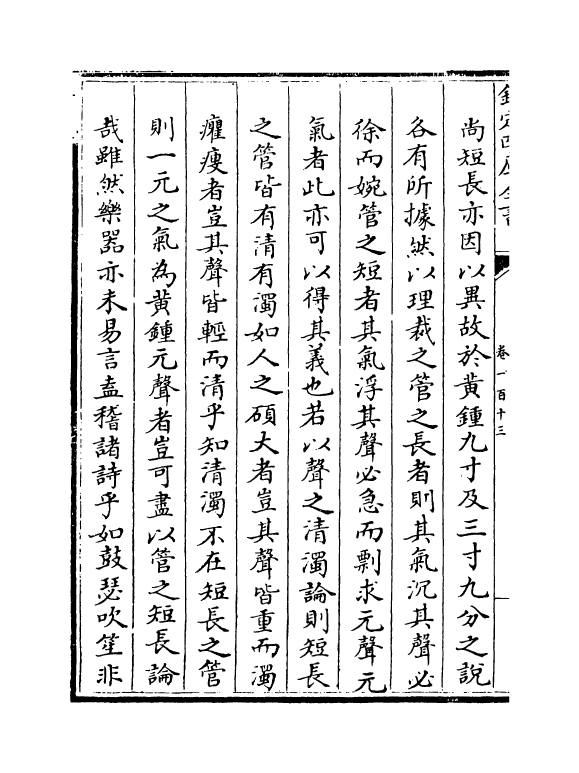 欽定四庫全書
卷一百十三
尚短長亦因以異故於黄鍾九寸及三寸九分之說
各有所據然以理裁之管之長者則其氣沉其聲必
徐而婉管之短者其氣浮其聲必急而剽求元聲元
氣者此亦可以得其義也若以聲之清濁論則短長
之管皆有清有濁如人之碩大者豈其聲皆重而濁
癯瘦者豈其聲皆輕而清乎知清濁不在短長之管
則一元之氣為黄鍾元聲者豈可盡以管之短長論
哉雖然樂器亦未易言盍稽諸詩乎如鼓瑟吹笙非